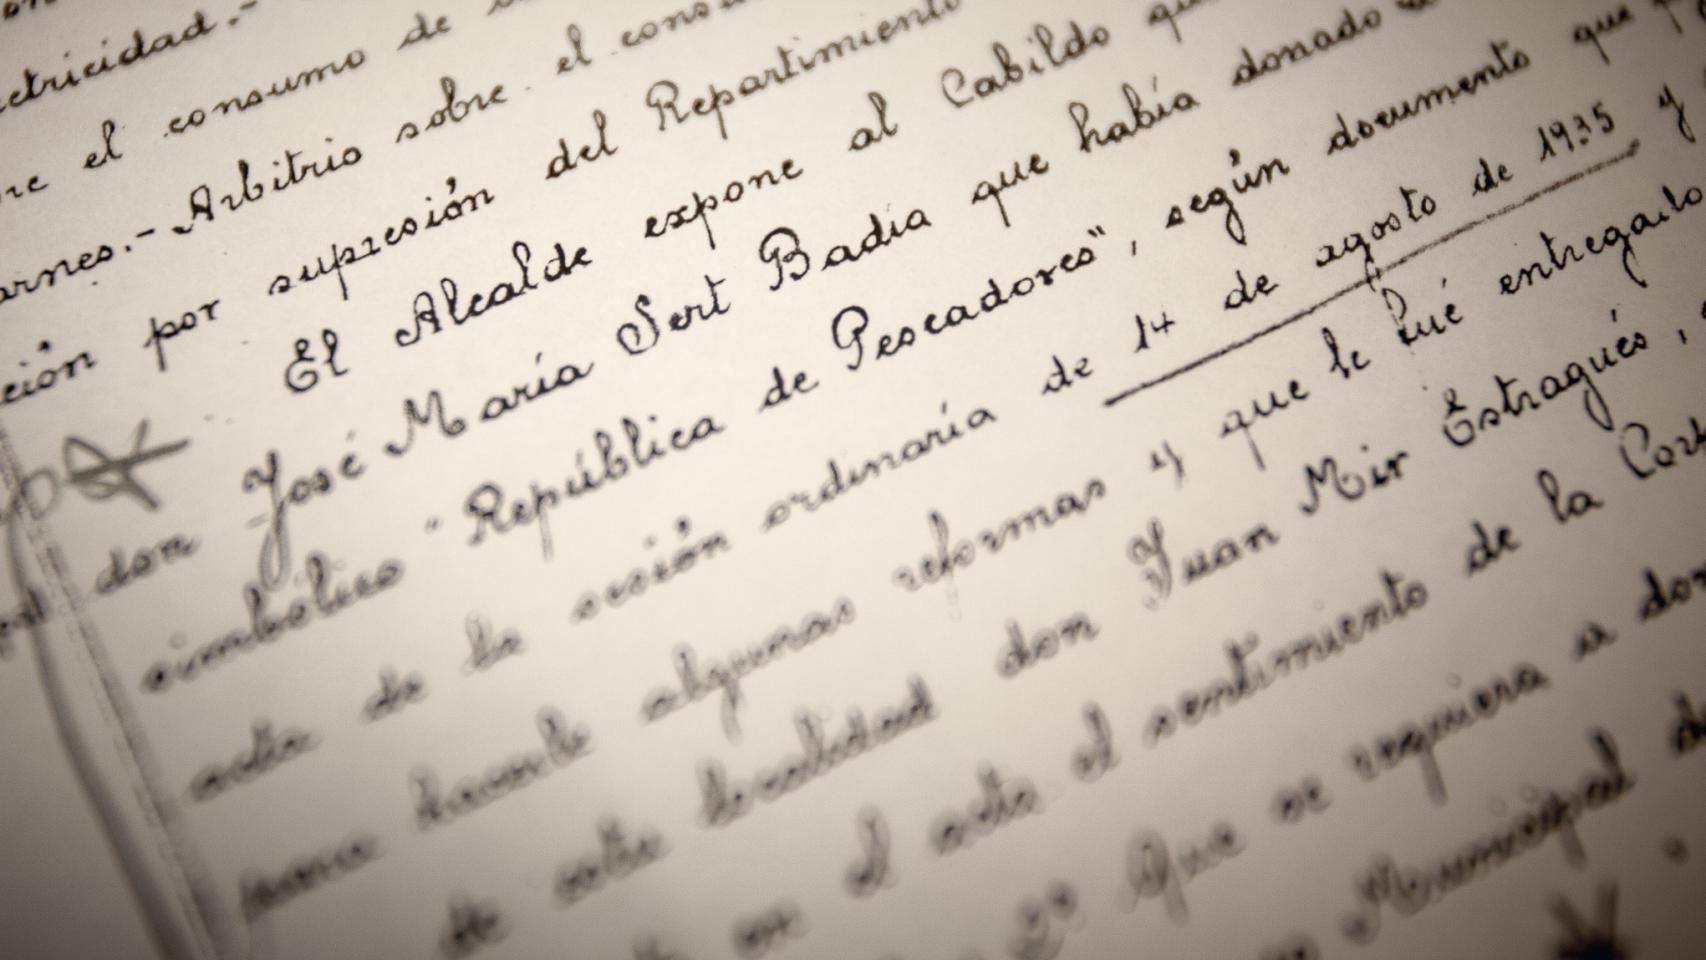 ctricidad.-
re el consumo de
arnes.- Arbitrio sobre el cons
ción por supresión del Repartimiento
El Alcalde expone al Cabildo qu
don José María Sert Badia que había donado
simbólico "República de Pescadores", según documento que
acta de la sesión ordinaria de 14 de agosto de 1935 y
para hacerle algunas reformas y que le fué entregado
de esta localidad don Juan Mir Estragués,
en el acta el sentimiento de la Cor
2º Que se requiera a don
Municipal de